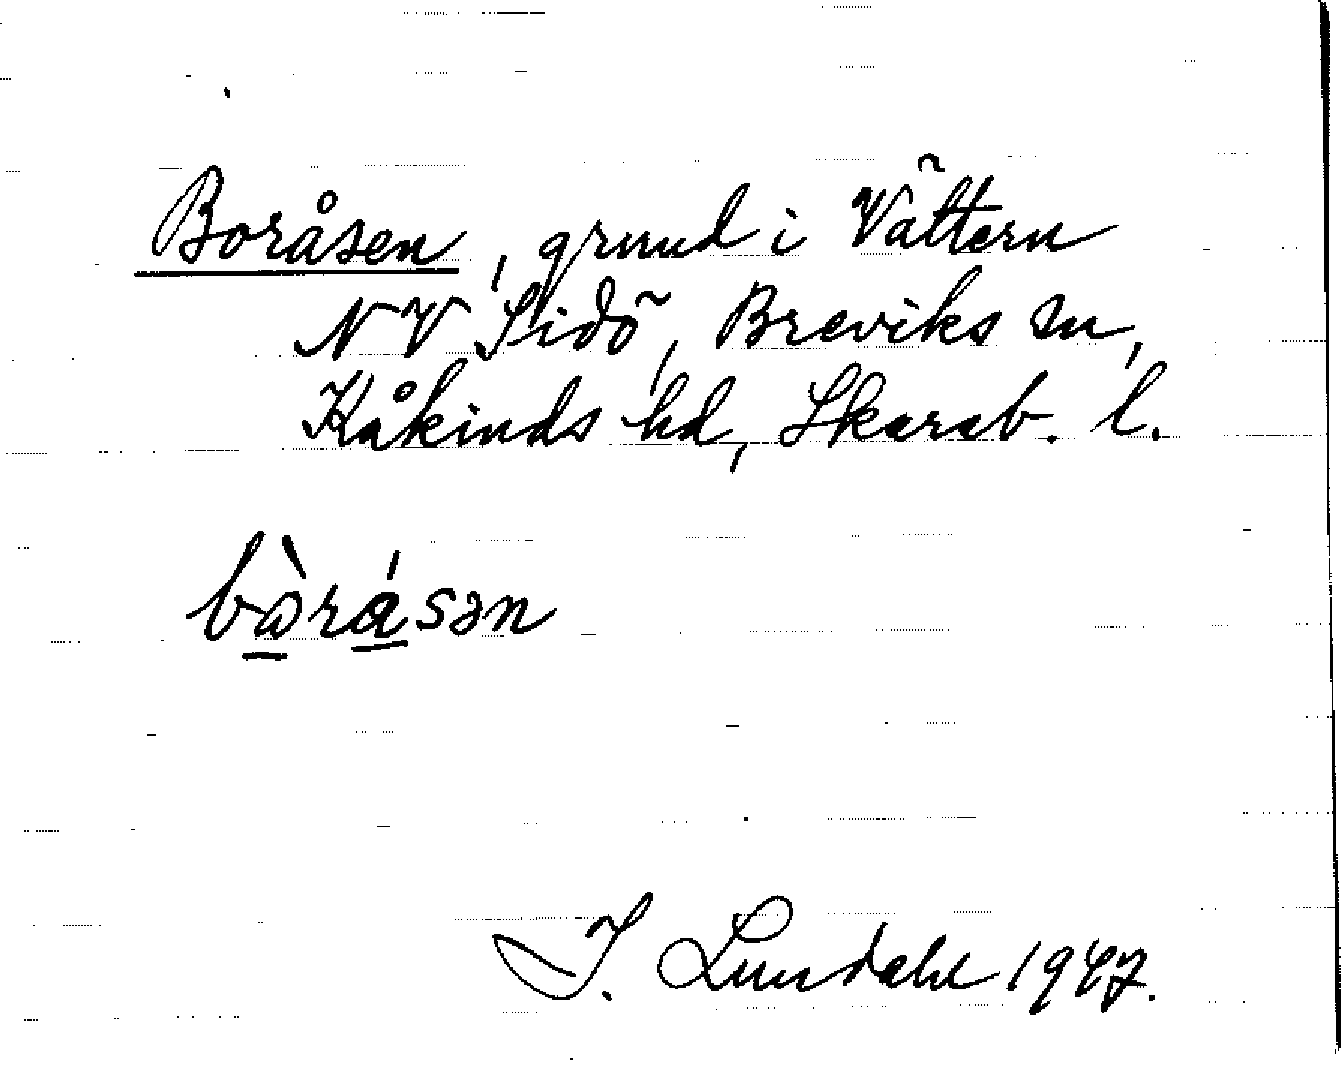 Boråsen, grund i Vättern
NV Sidö, Breviks sn,
Kåkinds hd, Skarab. l.
bòrásən
I. Lundahl 1947.